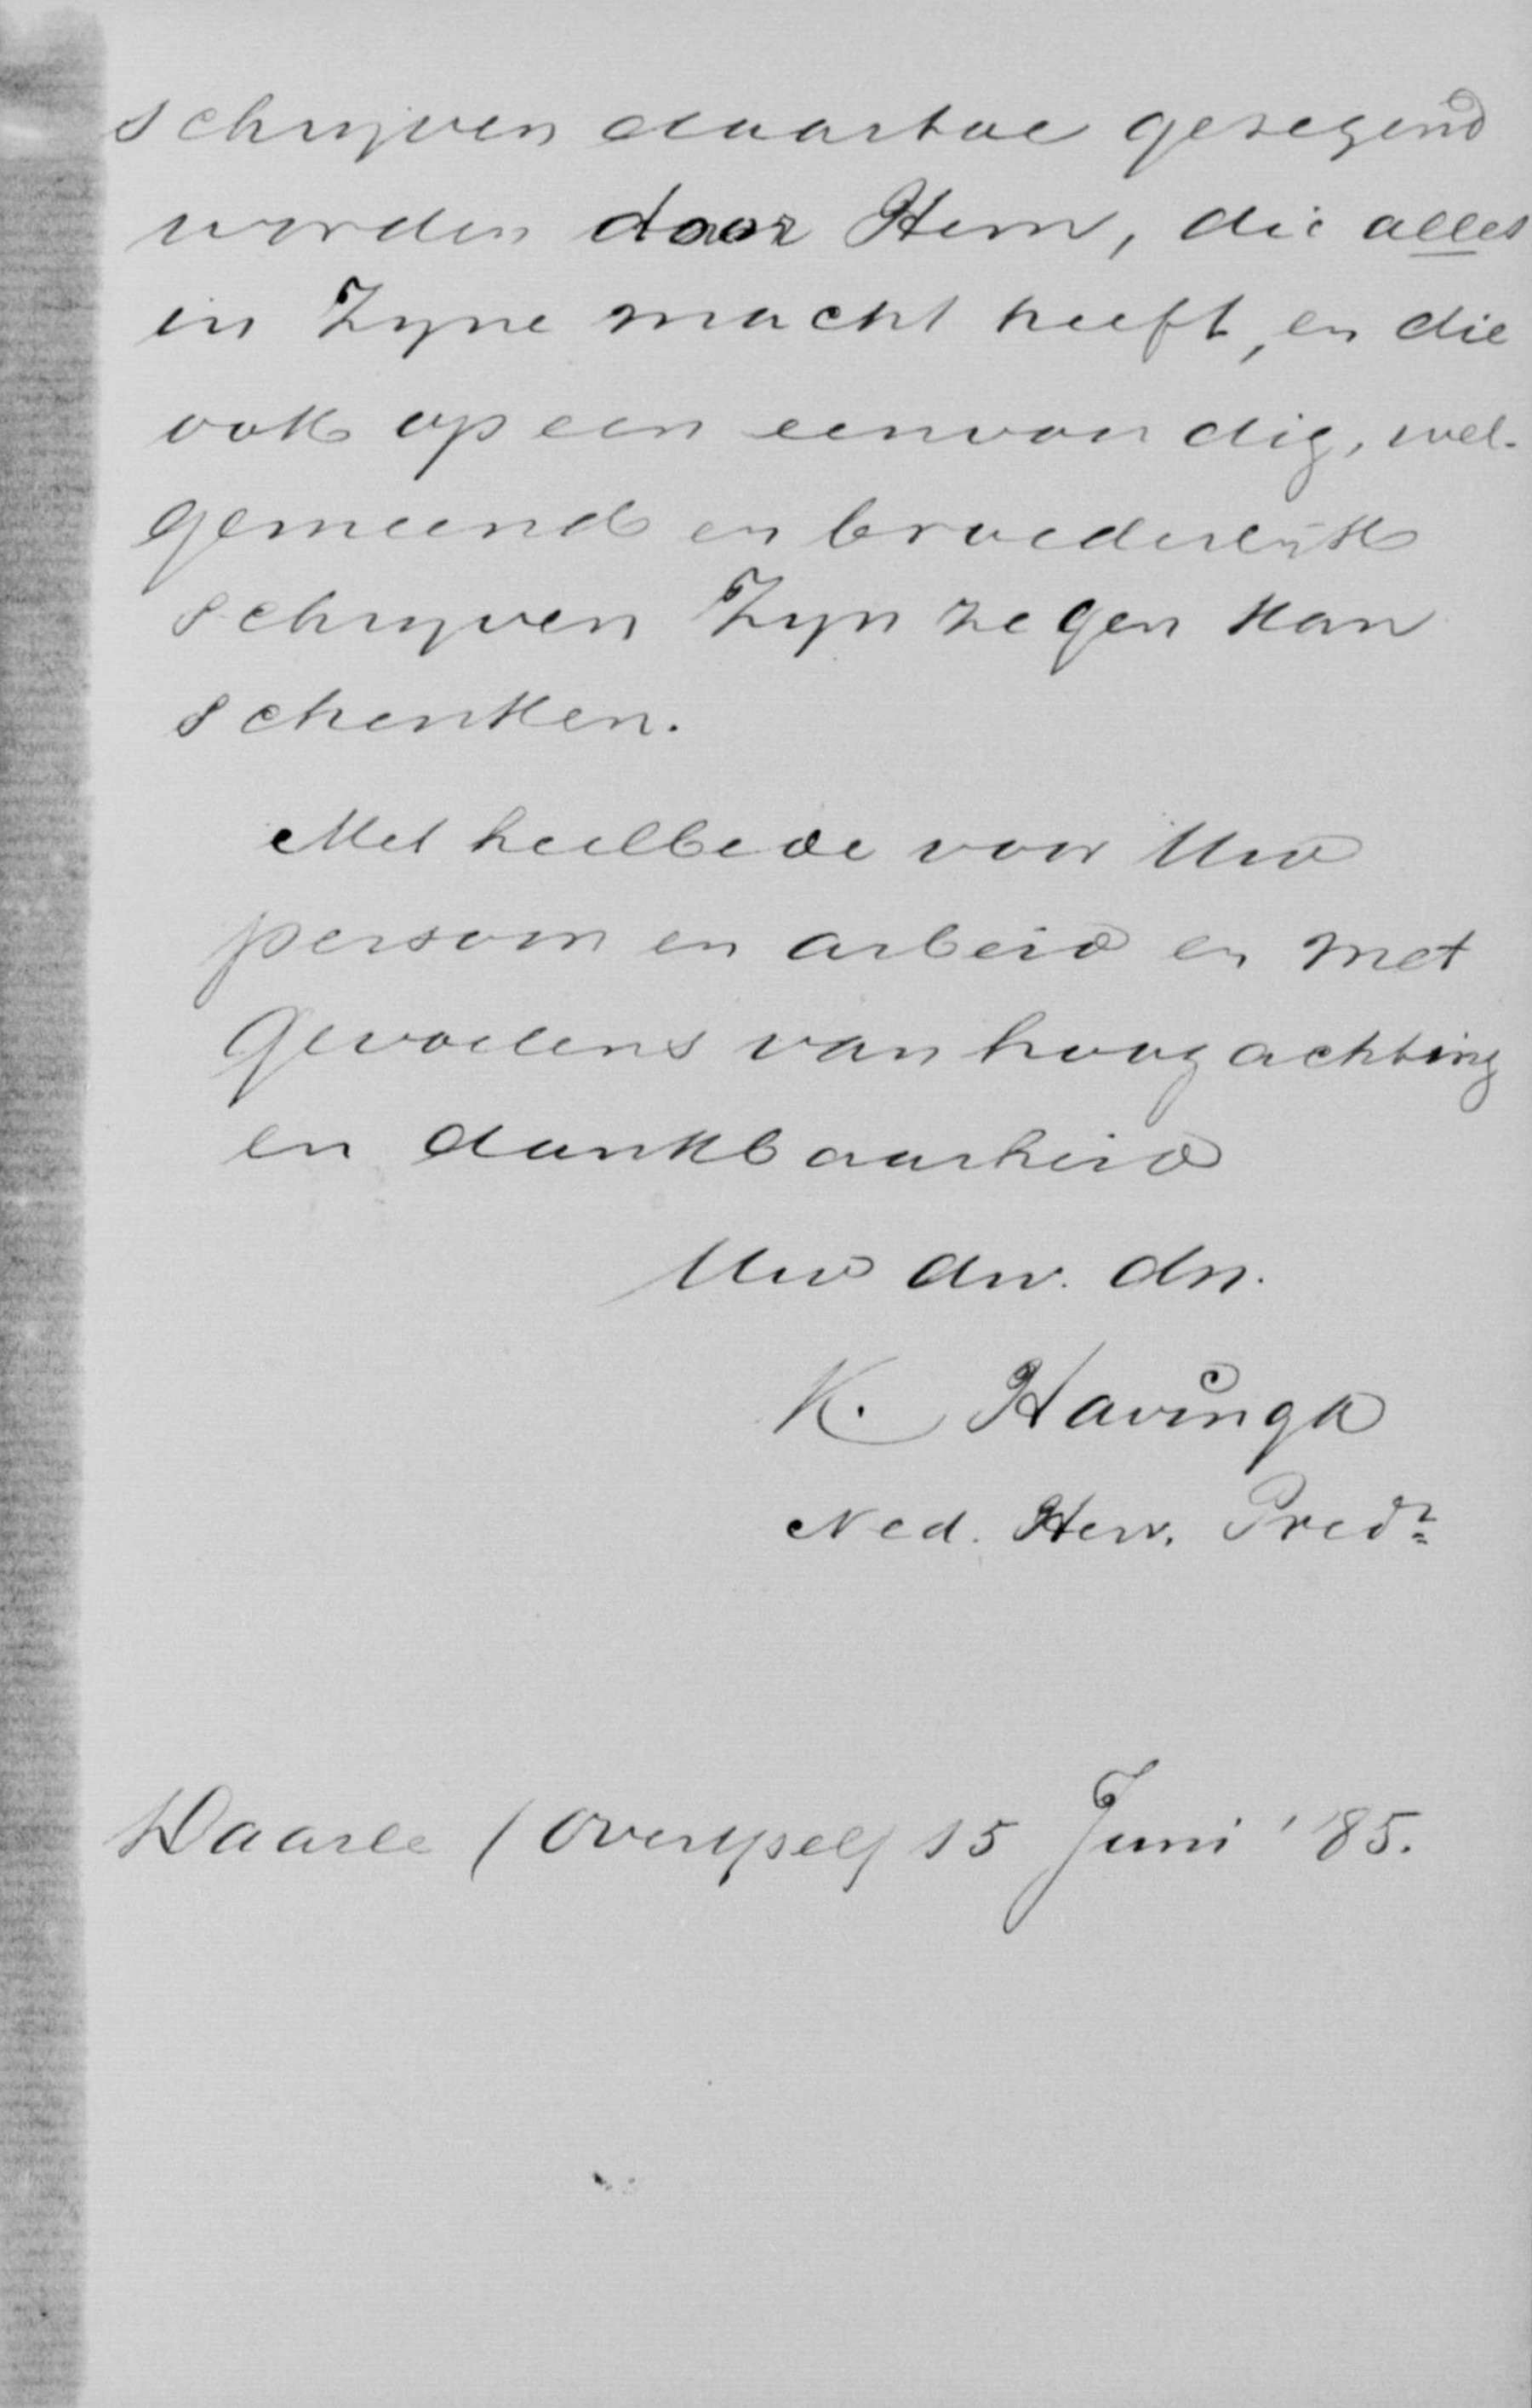 schrijven daartoe gezegend
worden door Hem, die alles
in Zyne macht heeft, en die
ook op een eenvoudig, wel-
gemeend en broederlijk
schrijven Zyn zegen kan
schenken.
Met heilbede voor Uw
persoon en arbeid en met
gevoelens van hoogachting
en dankbaarheid
Uw dw. dn.
K. Havinga
Ned. Herv. Predt
Daarle (Overijsel) 15 Juni '85.